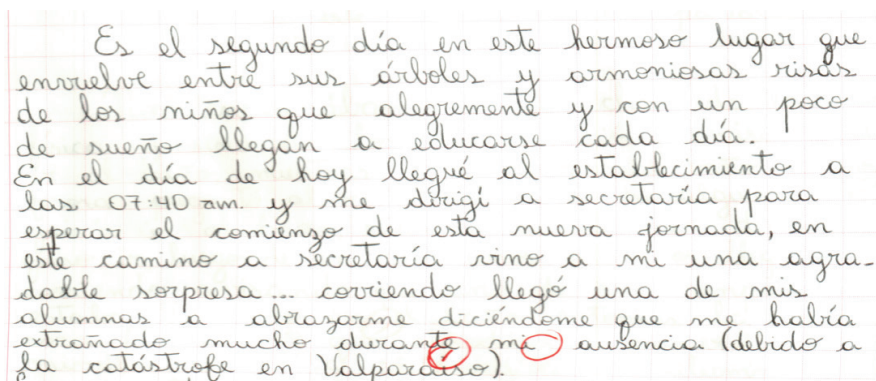 Es el segundo día en este hermoso lugar que
envuelve entre sus árboles y armoniosas risas
de los niños que alegremente y con un poco
de sueño llegan a educarse cada día.
En el día de hoy llegué al establecimiento a
las 07:40 am. y me dirigí a secretaría para
esperar el comienzo de esta nueva jornada, en
este camino a secretaría vino a mi una agra-
dable sorpresa... corriendo llegó una de mis
alumnas a abrazarme diciéndome que me había
extrañado mucho durante mi ausencia (debido a
la catástrofe en Valparaíso).